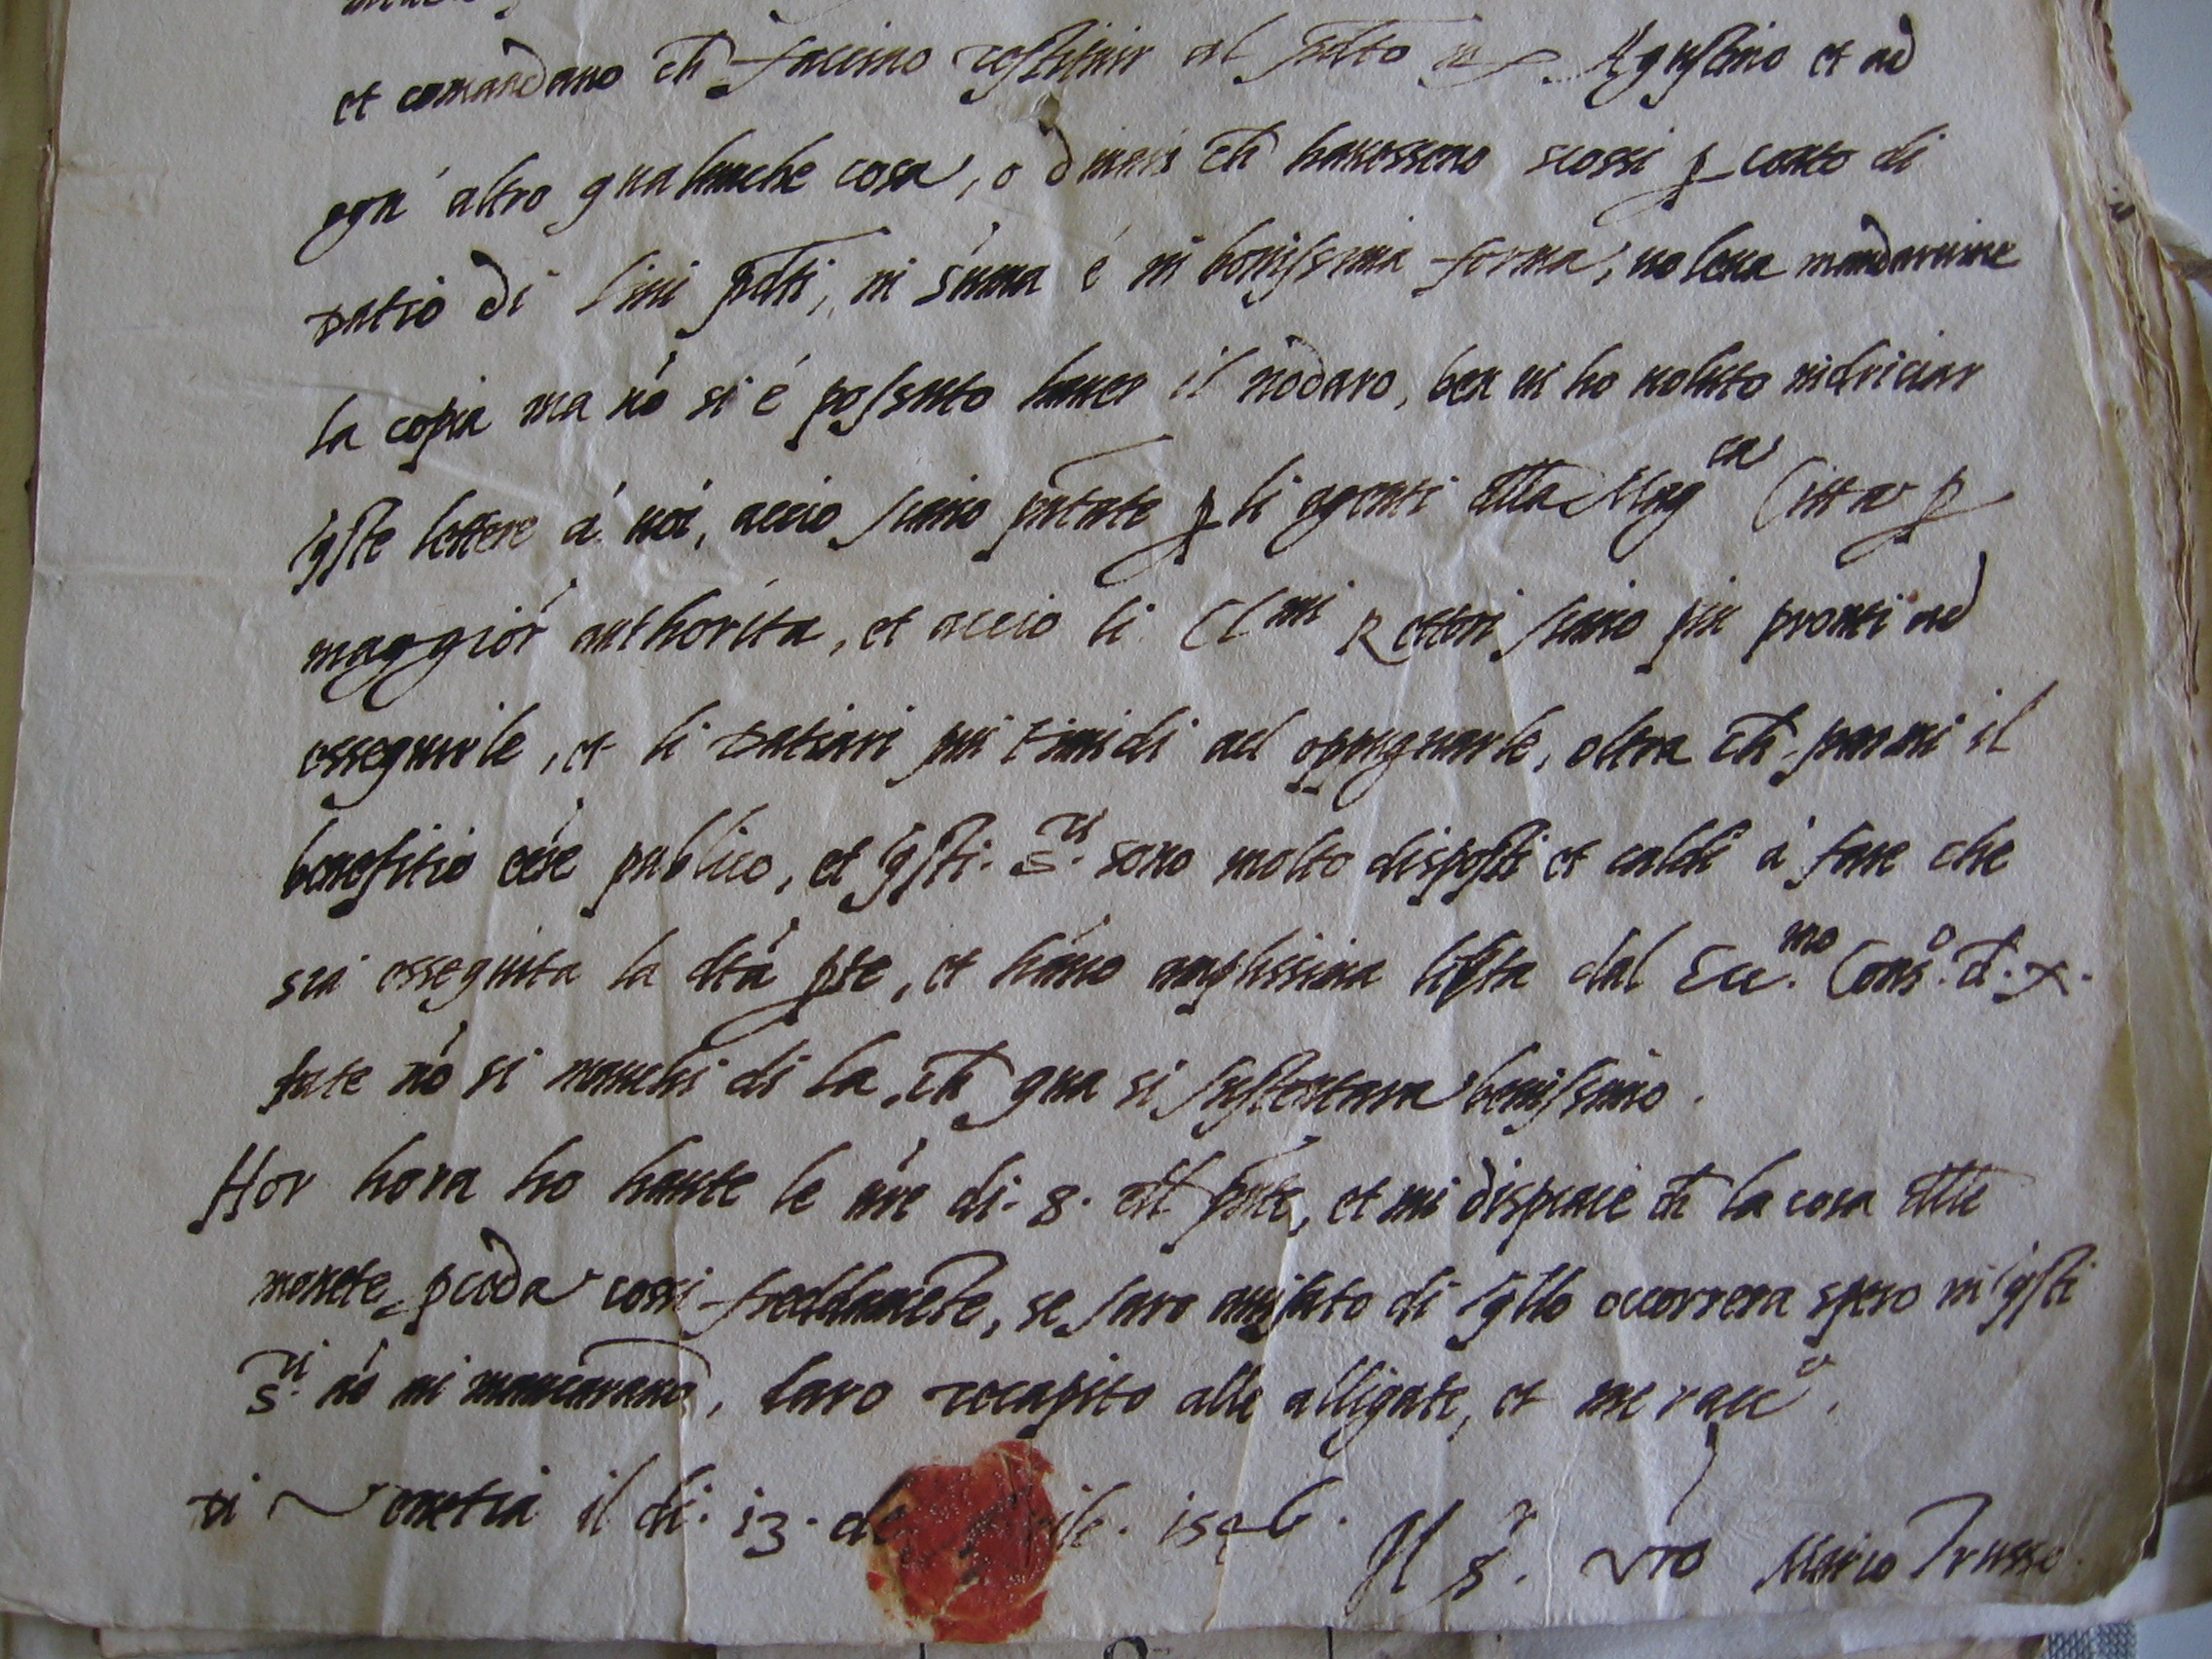 et comandano ch faccino restituir al pdto m. Agustino et ad
ogn' altro qualunche cosa, o dinari ch havesseno scossi p conto di
datio di lini pdti, in suma é in bonissima forma, voleva mandarvine
la copia ma nó si é possuto haver il nodaro, ben vi ho voluto indriciar
qste lettere á voi, accio siano pntate p li agenti dlla Magca Citta p
maggior authorita, et accio li Clmi Rettori siano piu pronti ad
esseguirle, et li datiari piu timidi ad oppugnarle, oltra ch parmi il
benefitio eére publico, et qsti Sri sono molto disposti et caldi á fare che
sia esseguita la dta pte, et hano amplissima libta dal Ecc.mo Conso. d. x.
fate nó si manchi di la, ch qua si sustentara benissimo.
Hor hora ho havute le vre di. 8. dl pnte, et mi dispiace ch la cosa dlle
monete pceda cossi freddamete, se saro avisato di qllo occorrera spero in qsti
Sri nó mi mancarano, daro recapito alle alligate, et me racco.
di Venetia il di. 13. de ile. 1546.
Il S. vro Marco Trusso.